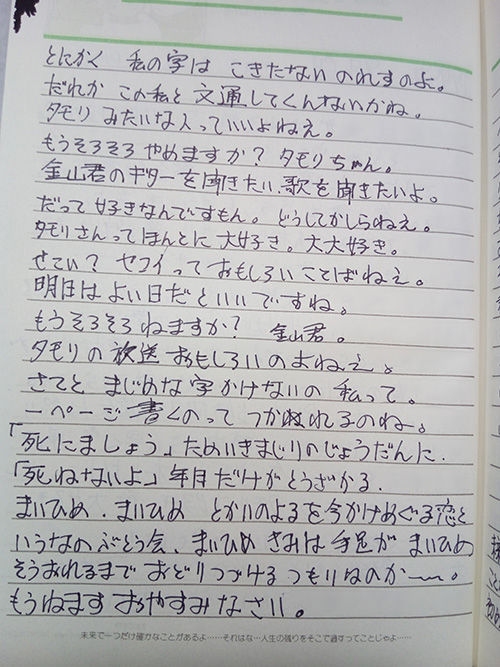 とにかく 私の字は こきたない のれすのよ。
だれか この私と 文通してくんないかね。
タモリ みたいな人っていいよねえ。
もうそろそろ やめますか？ タモリちゃん。
金山君のギターを聞きたい、歌を聞きたいよ。
だって 好きなんですもん。どうしてかしらねえ。
タモリさんってほんとに 大好き。大大好き。
せこい？ セコイって おもしろい ことばねえ。
明日は よい日だと いいですね。
もうそろそろ ねますか？ 金山君。
タモリの 放送 おもしろいのよねえ。
さてと まじめな 字 かけないの 私って。
一ページ 書くのって つかれるのね。
「死にましょう」ためいきまじりのじょうだんに、
「死ねないよ」年月だけがとうざかる、
まいひめ、まいひめ とかいのよるを今かけめぐる恋と
いうなの ぶとう会、まいひめ きみは 手足が まいひめ
そうおれるまで おどりつづける つもりなのか〜〜。
もうねます おやすみなさい。
未来で一つだけ確かなことがあるよ……それはな…人生の残りをそこで過すってことじゃよ……